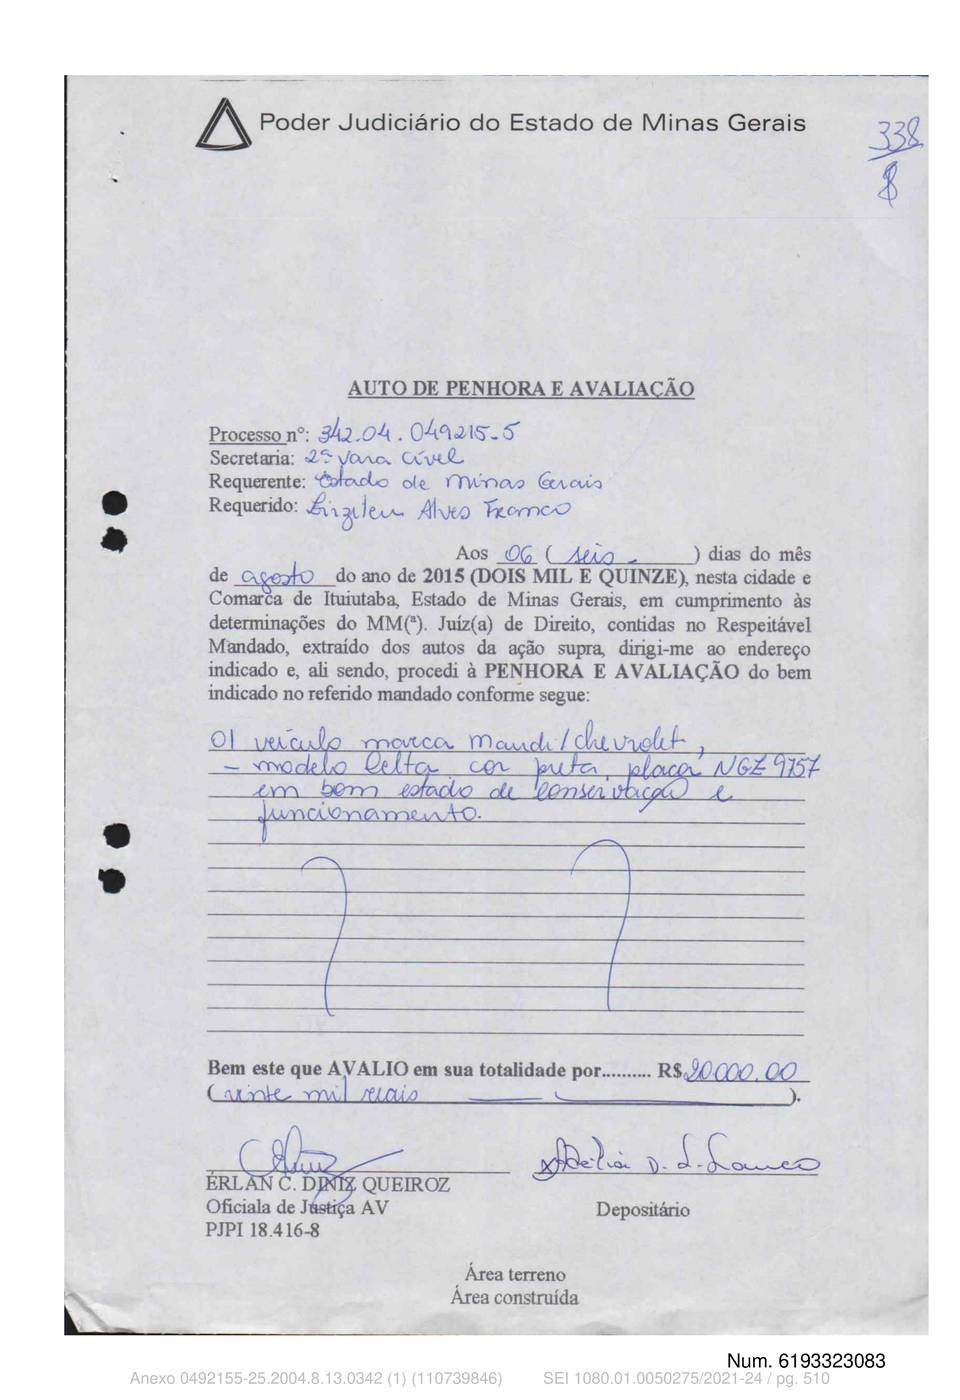 Poder Judiciário do Estado de Minas Gerais
338
AUTO DE PENHORA E AVALIAÇÃO
Processo nº: 342.04.049215-5
Secretaria: 2ª Vara Cível
Requerente: Estado de Minas Gerais
Requerido: Alves Franco
Aos 06 ( seis ) dias do mês
de agosto do ano de 2015 (DOIS MIL E QUINZE), nesta cidade e
Comarca de Ituiutaba, Estado de Minas Gerais, em cumprimento às
determinações do MM(ª). Juíz(a) de Direito, contidas no Respeitável
Mandado, extraído dos autos da ação supra, dirigi-me ao endereço
indicado e, ali sendo, procedi à PENHORA E AVALIAÇÃO do bem
indicado no referido mandado conforme segue:
01 veículo marca /Chevrolet,
- modelo Celta, cor preta, placa NGZ 9757
em bom estado de conservação e
funcionamento.
Bem este que AVALIO em sua totalidade por.......... R$ 20.000,00
( vinte mil reais ).
ÉRLAN C. DINIZ QUEIROZ
Oficiala de Justiça AV
Depositário
PJPI 18.416-8
Área terreno
Área construída
Num. 6193323083
Anexo 0492155-25.2004.8.13.0342 (1) (110739846) SEI 1080.01.0050275/2021-24 / pg. 510